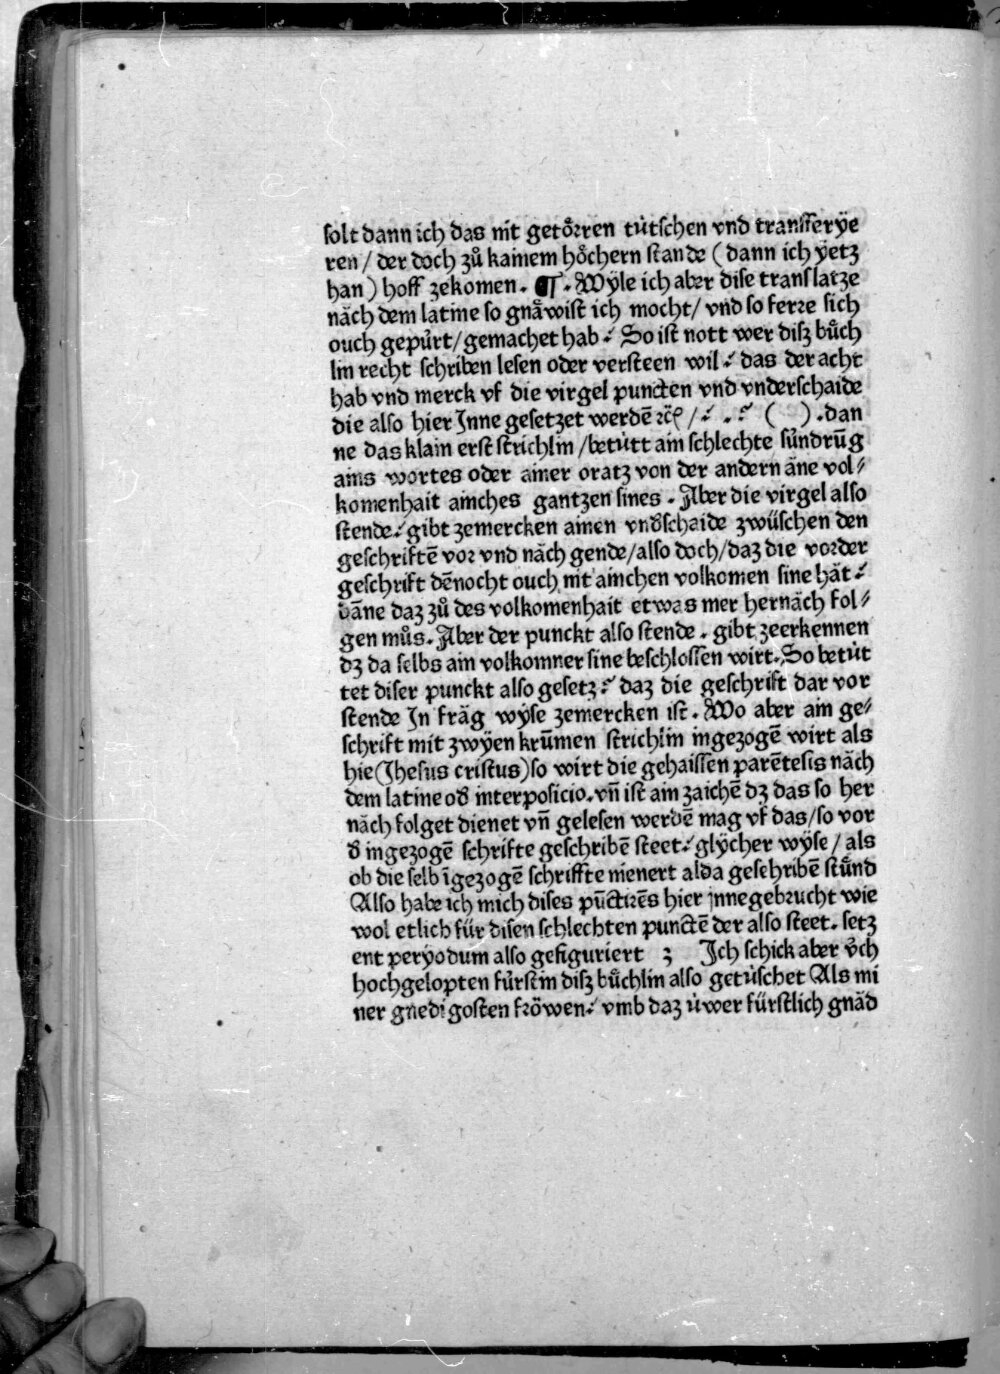 solt dann ich das nit getoͤrren tütschen vnd transferÿe
ren / der doch zuͦ kainem hoͤchern stande ( dann ich ÿetz
han ) hoff zekomen . ¶ . Wÿle ich aber dise translatze
naͤch dem latine so gnaͤwist ich mocht / vnd so ferre sich
ouch gepürt / gemachet hab ⸵ So ist nott wer disz buͤch
lin recht schriben lesen oder versteen wil ⸵ das der acht
hab vnd merck vf die virgel puncten vnd vnderschaide
die also hier Jnne gesetzet werdē ⁊c̄ / ⸵ . ⸮ ( ) . dan
ne das klain erst strichlin / betütt ain schlechte sündrūg
ains wortes oder ainer oratz von der andern āne vol⸗
komenhait ainches gantzen sines . Aber die virgel also
stende ⸵ gibt zemercken ainen vnd̓schaide zwüschen den
geschriftē vor vnd naͤch gende / also doch / daz die vorder
geschrift dēnocht ouch nit ainchen volkomen sine haͤt ⸵
dāne daz zuͦ des volkomenhait etwas mer hernaͤch fol⸗
gen muͦs . Aber der punckt also stende . gibt zeerkennen
dz da selbs ain volkomner sine beschlossen wirt . So betüt
tet diser punckt also gesetz ⸮ daz die geschrift dar vor
stende Jn fraͤg wÿse zemercken ist . Wo aber ain ge⸗
schrift mit zwÿen krūmen strichlin ingezogē wirt als
hie ( Jhesus cristus ) so wirt die gehaissen parētesis naͤch
dem latine od̓ interposicio . vn̄ ist ain zaichē dz das so her
naͤch folget dienet vn̄ gelesen werdē mag vf das / so vor
d̓ ingezogē schrifte geschribē steet ⸵ glÿcher wÿse / als
ob die selb īgezogē schriffte nienert alda geschribē stuͤnd
Also habe ich mich dises pūctirēs hier jnne gebrucht wie
wol etlich für disen schlechten punctē der also steet . setz
ent perÿodum also gefiguriert ; Jch schick aber v̓ch
hochgelopten fürstin disz buͤchlin also getüschet Als mi
ner gnedigosten froͤwen ⸵ vmb daz üwer fürstlich gnaͤd